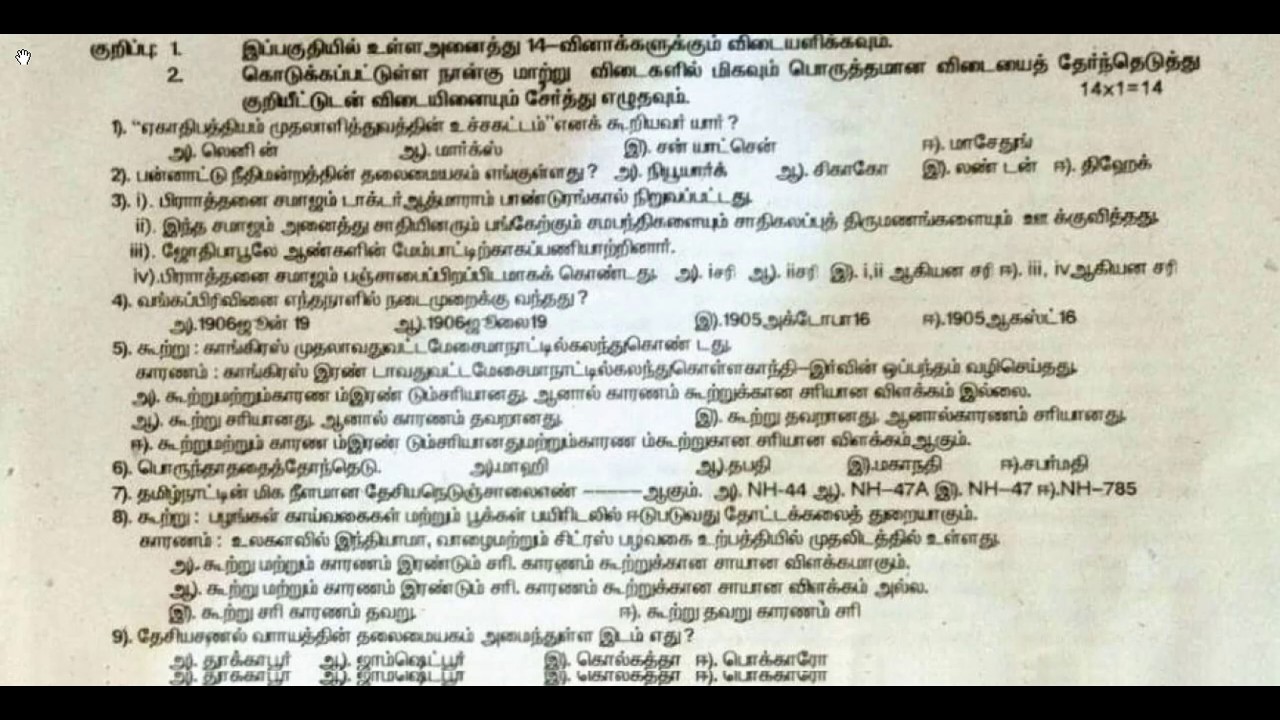 குறிப்பு: 1. இப்பகுதியில் உள்ள அனைத்து 14–வினாக்களுக்கும் விடையளிக்கவும்.
2. கொடுக்கப்பட்டுள்ள நான்கு மாற்று விடைகளில் மிகவும் பொருத்தமான விடையைத் தேர்ந்தெடுத்து
குறியீட்டுடன் விடையினையும் சேர்த்து எழுதவும். 14x1=14
1). “ஏகாதிபத்தியம் முதலாளித்துவத்தின் உச்சகட்டம்”எனக் கூறியவர் யார் ?
அ). லெனின் ஆ). மார்க்ஸ் இ). சன் யாட்சென் ஈ). மாசேதுங்
2). பன்னாட்டு நீதிமன்றத்தின் தலைமையகம் எங்குள்ளது ? அ). நியூயார்க் ஆ). சிகாகோ இ). லண்டன் ஈ). திஹேக்
3). i). பிரார்த்தனை சமாஜம் டாக்டர்ஆத்மாராம் பாண்டுரங்கால் நிறுவப்பட்டது.
ii). இந்த சமாஜம் அனைத்து சாதியினரும் பங்கேற்கும் சமபந்திகளையும் சாதிகலப்புத் திருமணங்களையும் ஊக்குவித்தது.
iii). ஜோதிபாபூலே ஆண்களின் மேம்பாட்டிற்காகப்பணியாற்றினார்.
iv).பிரார்த்தனை சமாஜம் பஞ்சாபைப்பிறப்பிடமாகக் கொண்டது. அ). iசரி ஆ). iiசரி இ). i,ii ஆகியன சரி ஈ). iii, ivஆகியன சரி
4). வங்கப்பிரிவினை எந்தநாளில் நடைமுறைக்கு வந்தது ?
அ).1906ஜூன் 19 ஆ).1906ஜூலை19 இ).1905அக்டோபர்16 ஈ).1905ஆகஸ்ட்16
5). கூற்று : காங்கிரஸ் முதலாவதுவட்டமேசைமாநாட்டில்கலந்துகொண்டது.
காரணம் : காங்கிரஸ் இரண்டாவதுவட்டமேசைமாநாட்டில்கலந்துகொள்ளகாந்தி–இர்வின் ஒப்பந்தம் வழிசெய்தது.
அ). கூற்றுமற்றும்காரணம்இரண்டும்சரியானது. ஆனால் காரணம் கூற்றுக்கான சரியான விளக்கம் இல்லை.
ஆ). கூற்று சரியானது. ஆனால் காரணம் தவறானது. இ). கூற்று தவறானது. ஆனால்காரணம் சரியானது.
ஈ). கூற்றுமற்றும் காரணம்இரண்டும்சரியானதுமற்றும்காரணம்கூற்றுகான சரியான விளக்கம்ஆகும்.
6). பொருந்தாததைத்தேர்ந்தெடு. அ).மாஹி ஆ).தபதி இ).மகாநதி ஈ).சபர்மதி
7). தமிழ்நாட்டின் மிக நீளமான தேசியநெடுஞ்சாலைஎண் ––––– ஆகும். அ). NH-44 ஆ). NH–47A இ). NH–47 ஈ).NH–785
8). கூற்று : பழங்கள் காய்வகைகள் மற்றும் பூக்கள் பயிரிடலில் ஈடுபடுவது தோட்டக்கலைத் துறையாகும்.
காரணம் : உலகளவில் இந்தியாமா, வாழைமற்றும் சிட்ரஸ் பழவகை உற்பத்தியில் முதலிடத்தில் உள்ளது.
அ). கூற்று மற்றும் காரணம் இரண்டும் சரி. காரணம் கூற்றுக்கான சரியான விளக்கமாகும்.
ஆ). கூற்று மற்றும் காரணம் இரண்டும் சரி. காரணம் கூற்றுக்கான சரியான விளக்கம் அல்ல.
இ). கூற்று சரி காரணம் தவறு. ஈ). கூற்று தவறு காரணம் சரி
9). தேசியசணல் வாரியத்தின் தலைமையகம் அமைந்துள்ள இடம் எது ?
அ). தூர்க்காபூர் ஆ). ஜாம்ஷெட்பூர் இ). கொல்கத்தா ஈ). பொக்காரோ